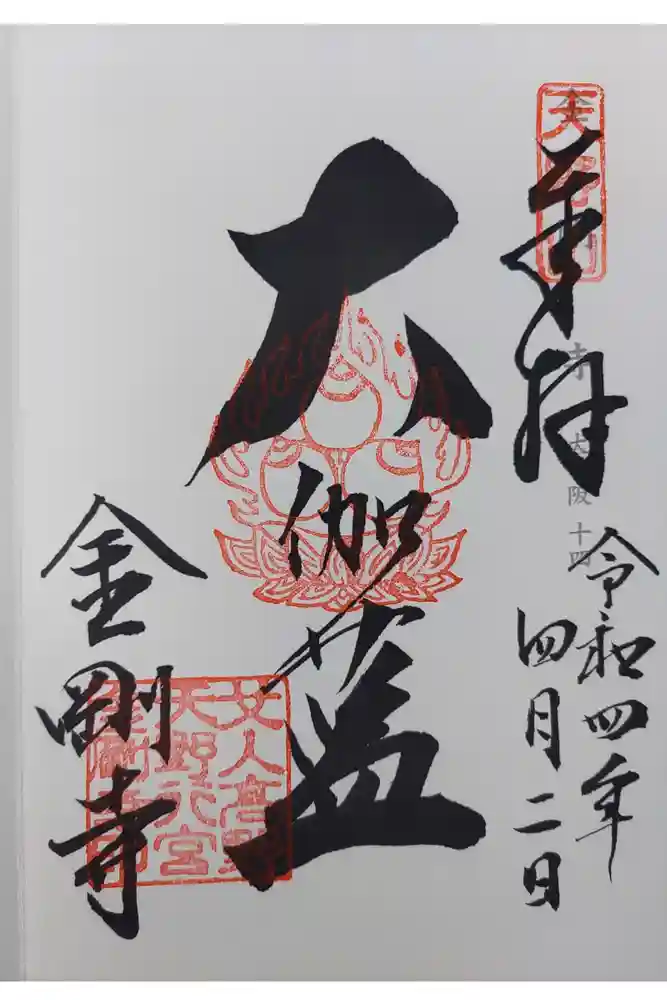 奉拝
天野山
金剛寺
大阪十四
令和四年
四月二日
大伽藍
金剛寺
女人高野
天野行宮
金剛寺印